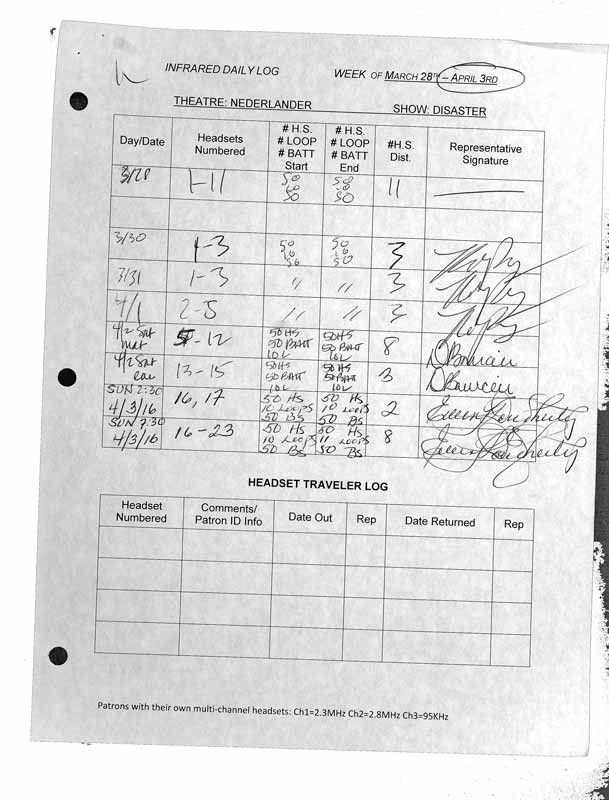 INFRARED DAILY LOG WEEK OF MARCH 28TH – APRIL 3RD
THEATRE: NEDERLANDER SHOW: DISASTER
Day/Date Headsets Numbered # H.S. # LOOP # BATT Start # H.S. # LOOP # BATT End #H.S. Dist. Representative Signature
3/28 1-11 50 50 50 50 11
3/30 1-3 50 10 50 50 10 50 3
3/31 1-3 " " 3
4/1 2-5 " " 3
4/2 Sat mat 5-12 50 HS 50 BATT 10 L 50 HS 50 BATT 10 L 8
4/2 Sat eve 13-15 50 HS 50 BATT 10 L 50 HS 50 BATT 10 L 3
SUN 2:30 4/3/16 16, 17 50 HS 10 LOOPS 50 BS 50 HS 10 LOOPS 50 BS 2
SUN 7:30 4/3/16 16-23 50 HS 10 LOOPS 50 BS 50 HS 11 LOOPS 50 BS 8
HEADSET TRAVELER LOG
Headset Numbered Comments/ Patron ID Info Date Out Rep Date Returned Rep
Patrons with their own multi-channel headsets: Ch1=2.3MHz Ch2=2.8MHz Ch3=95KHz